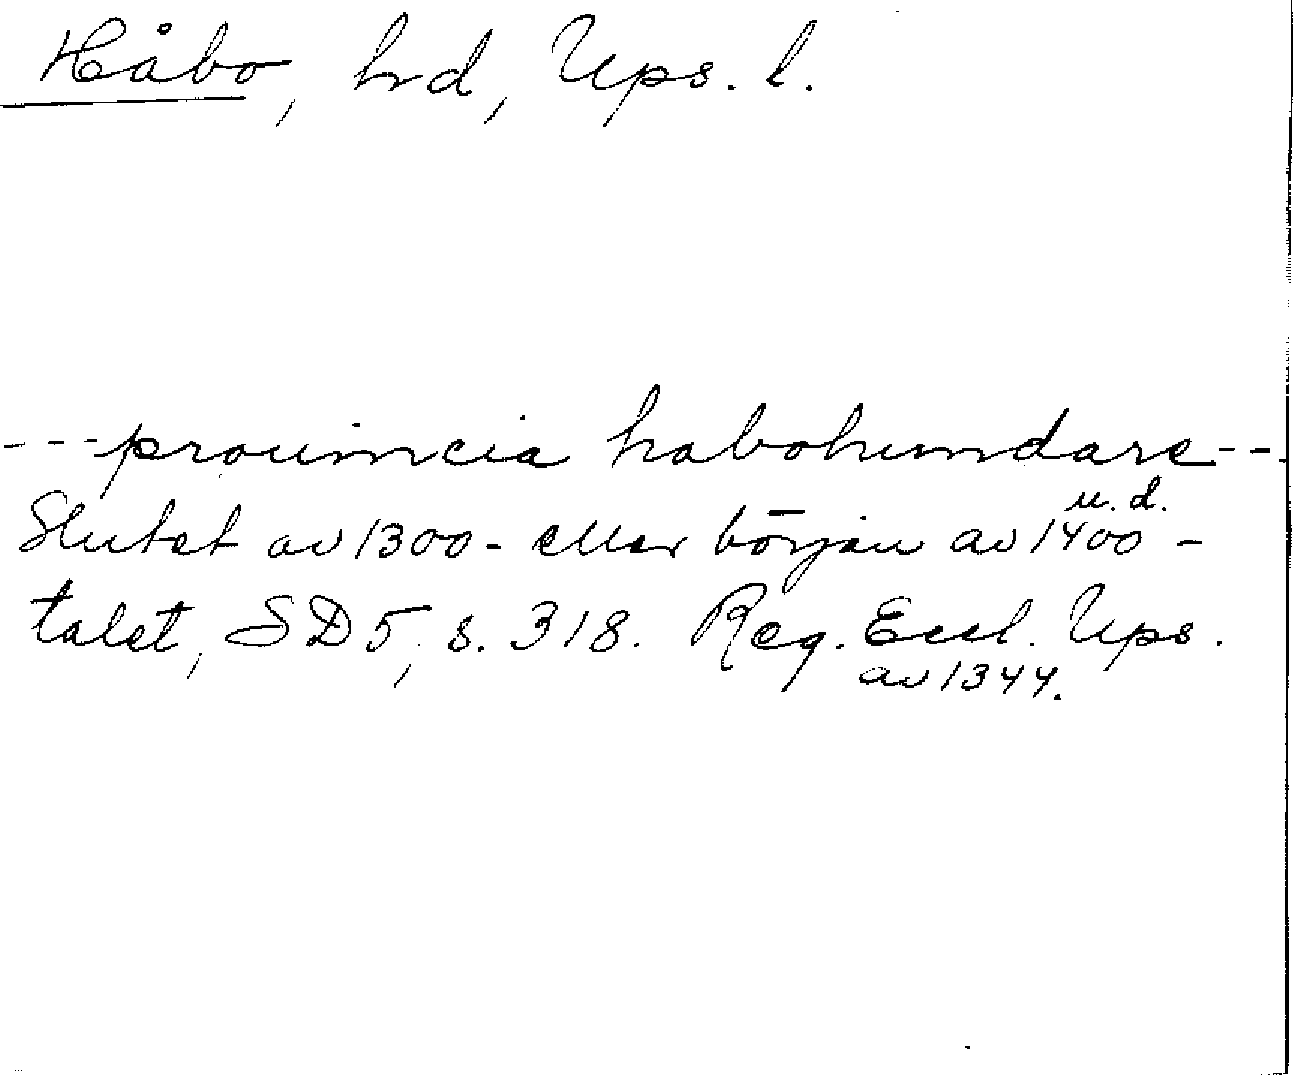 Håbo, hrd, Ups. l.
---prouincia habohundare---
u. d.
Slutet av 1300- eller början av 1400-
talet, SD 5, s. 318. Reg. Eccl. Ups.
av 1344.